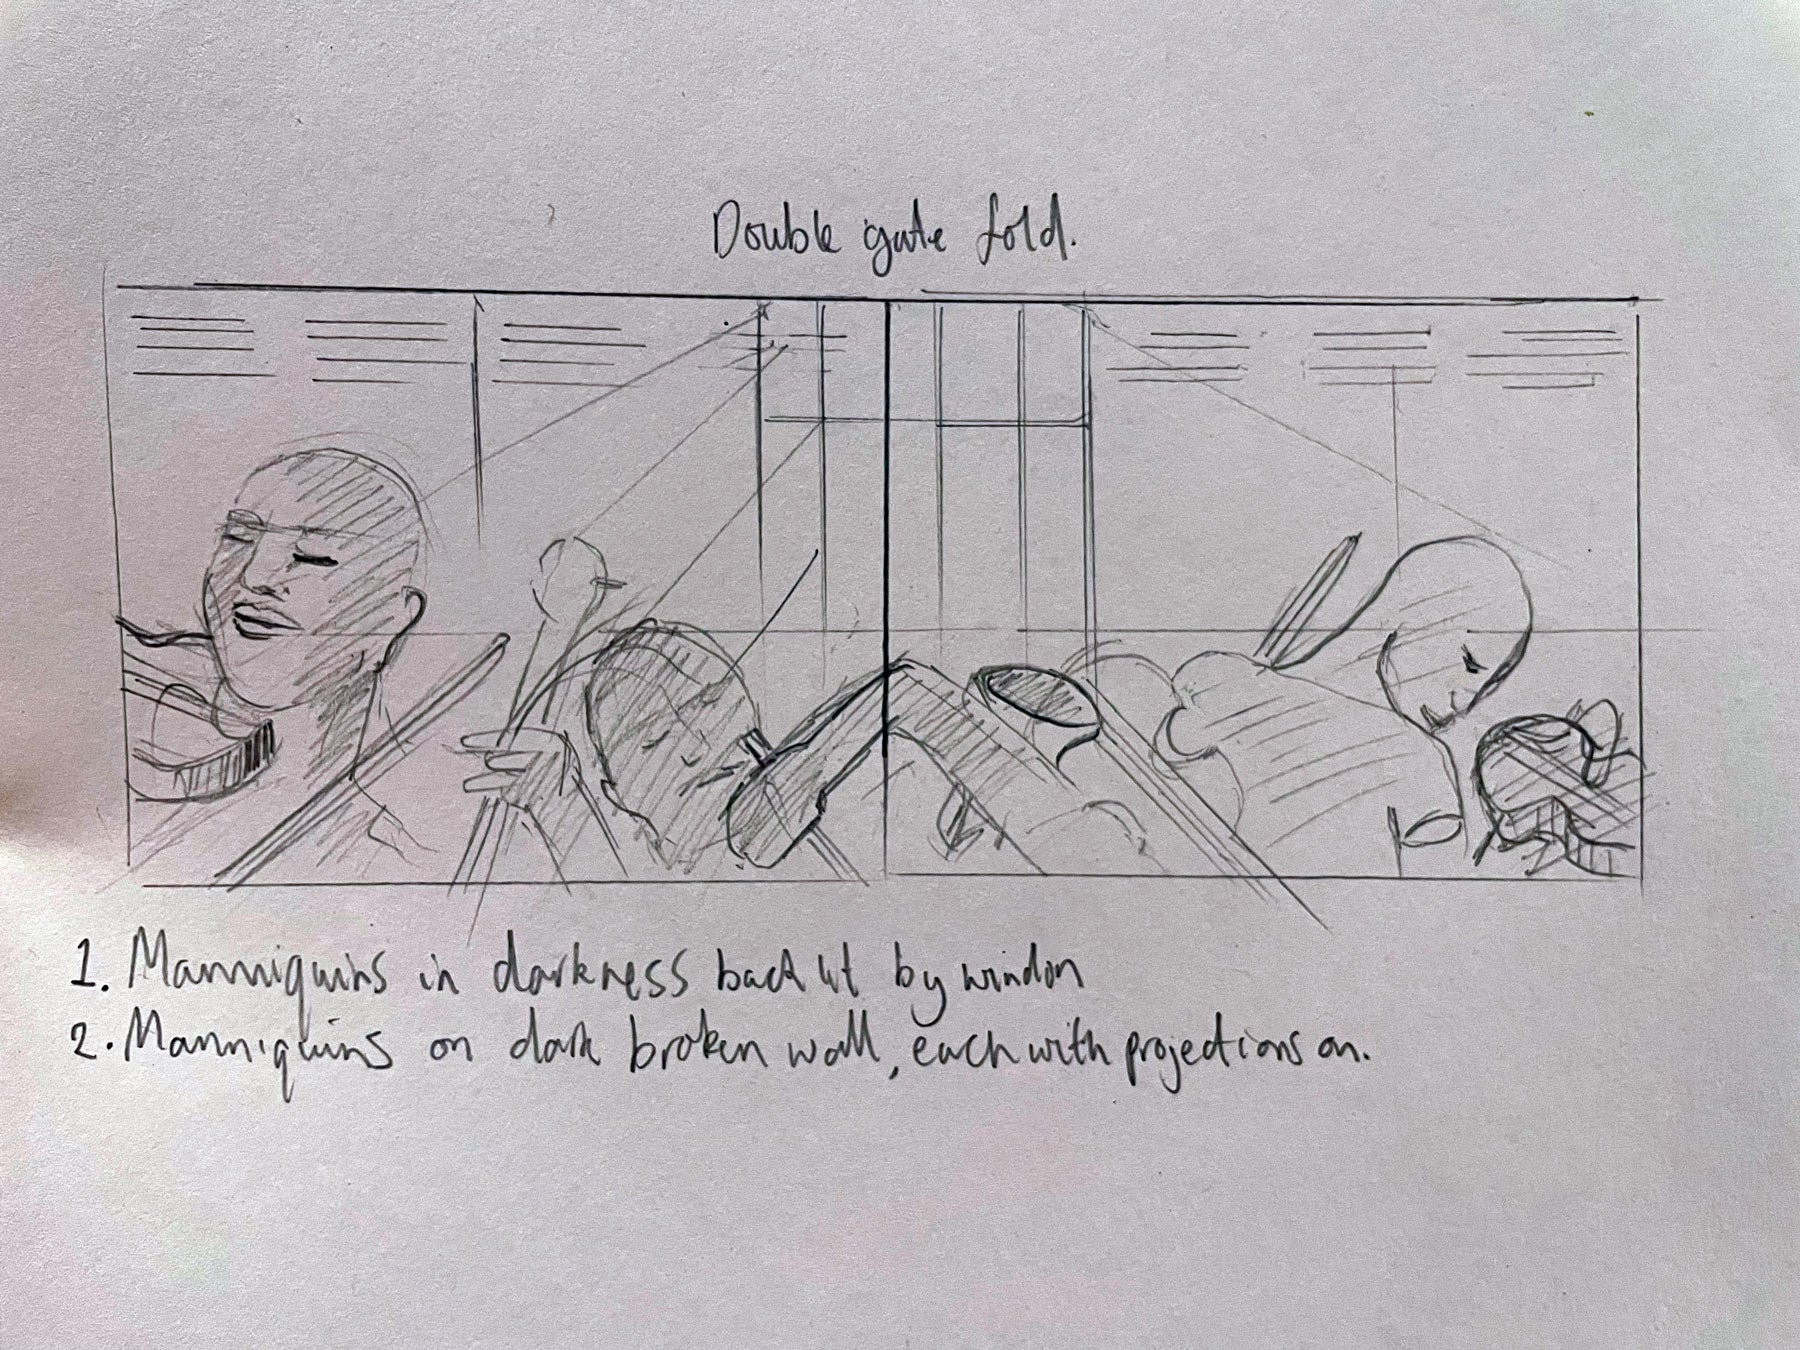 Double gate fold.
1. Manniquins in darkness back lit by window
2. Manniquins on dark broken wall, each with projections on.